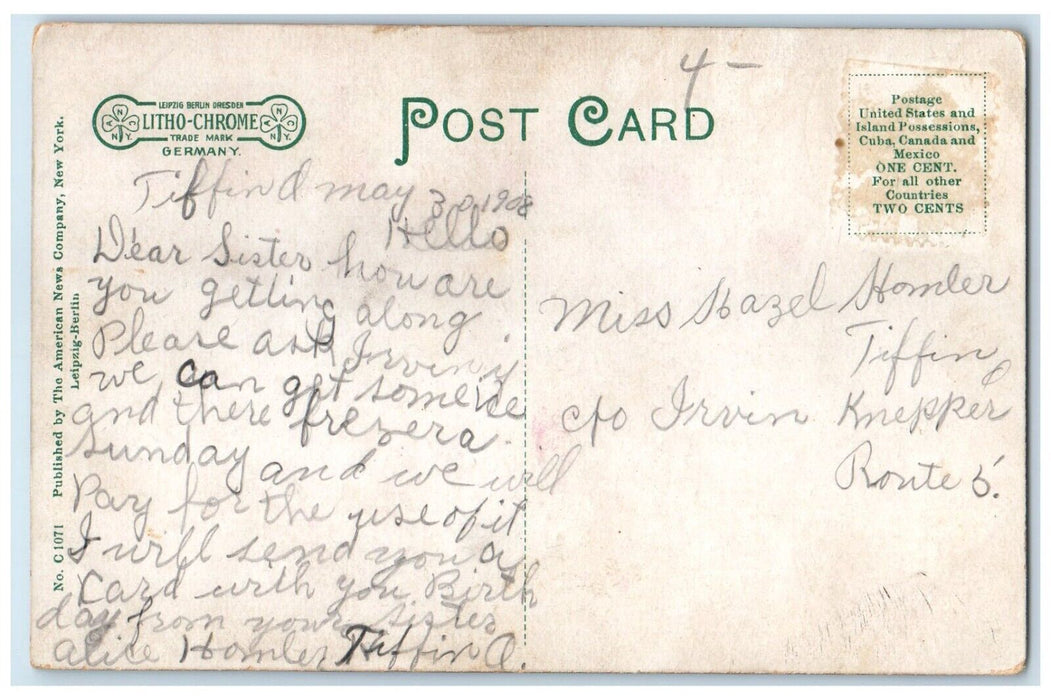 4-
LEIPZIG BERLIN DRESDEN
LITHO-CHROME
TRADE MARK
GERMANY.
POST CARD
Postage
United States and
Island Possessions,
Cuba, Canada and
Mexico
ONE CENT.
For all other
Countries
TWO CENTS
No. C 1071 Published by The American News Company, New York.
Leipzig-Berlin
Tiffin O may 30, 1908
Hello
Dear Sister how are
you getting along
Please ask Irvin if
we can get some ice
and there frezera
Sunday and we will
Pay for the use of it
I will send you a
Card with you Birth
day from your sister
alice Homler Tiffin O.
Miss Hazel Homler
Tiffin
c/o Irvin Knepper
Route 5.